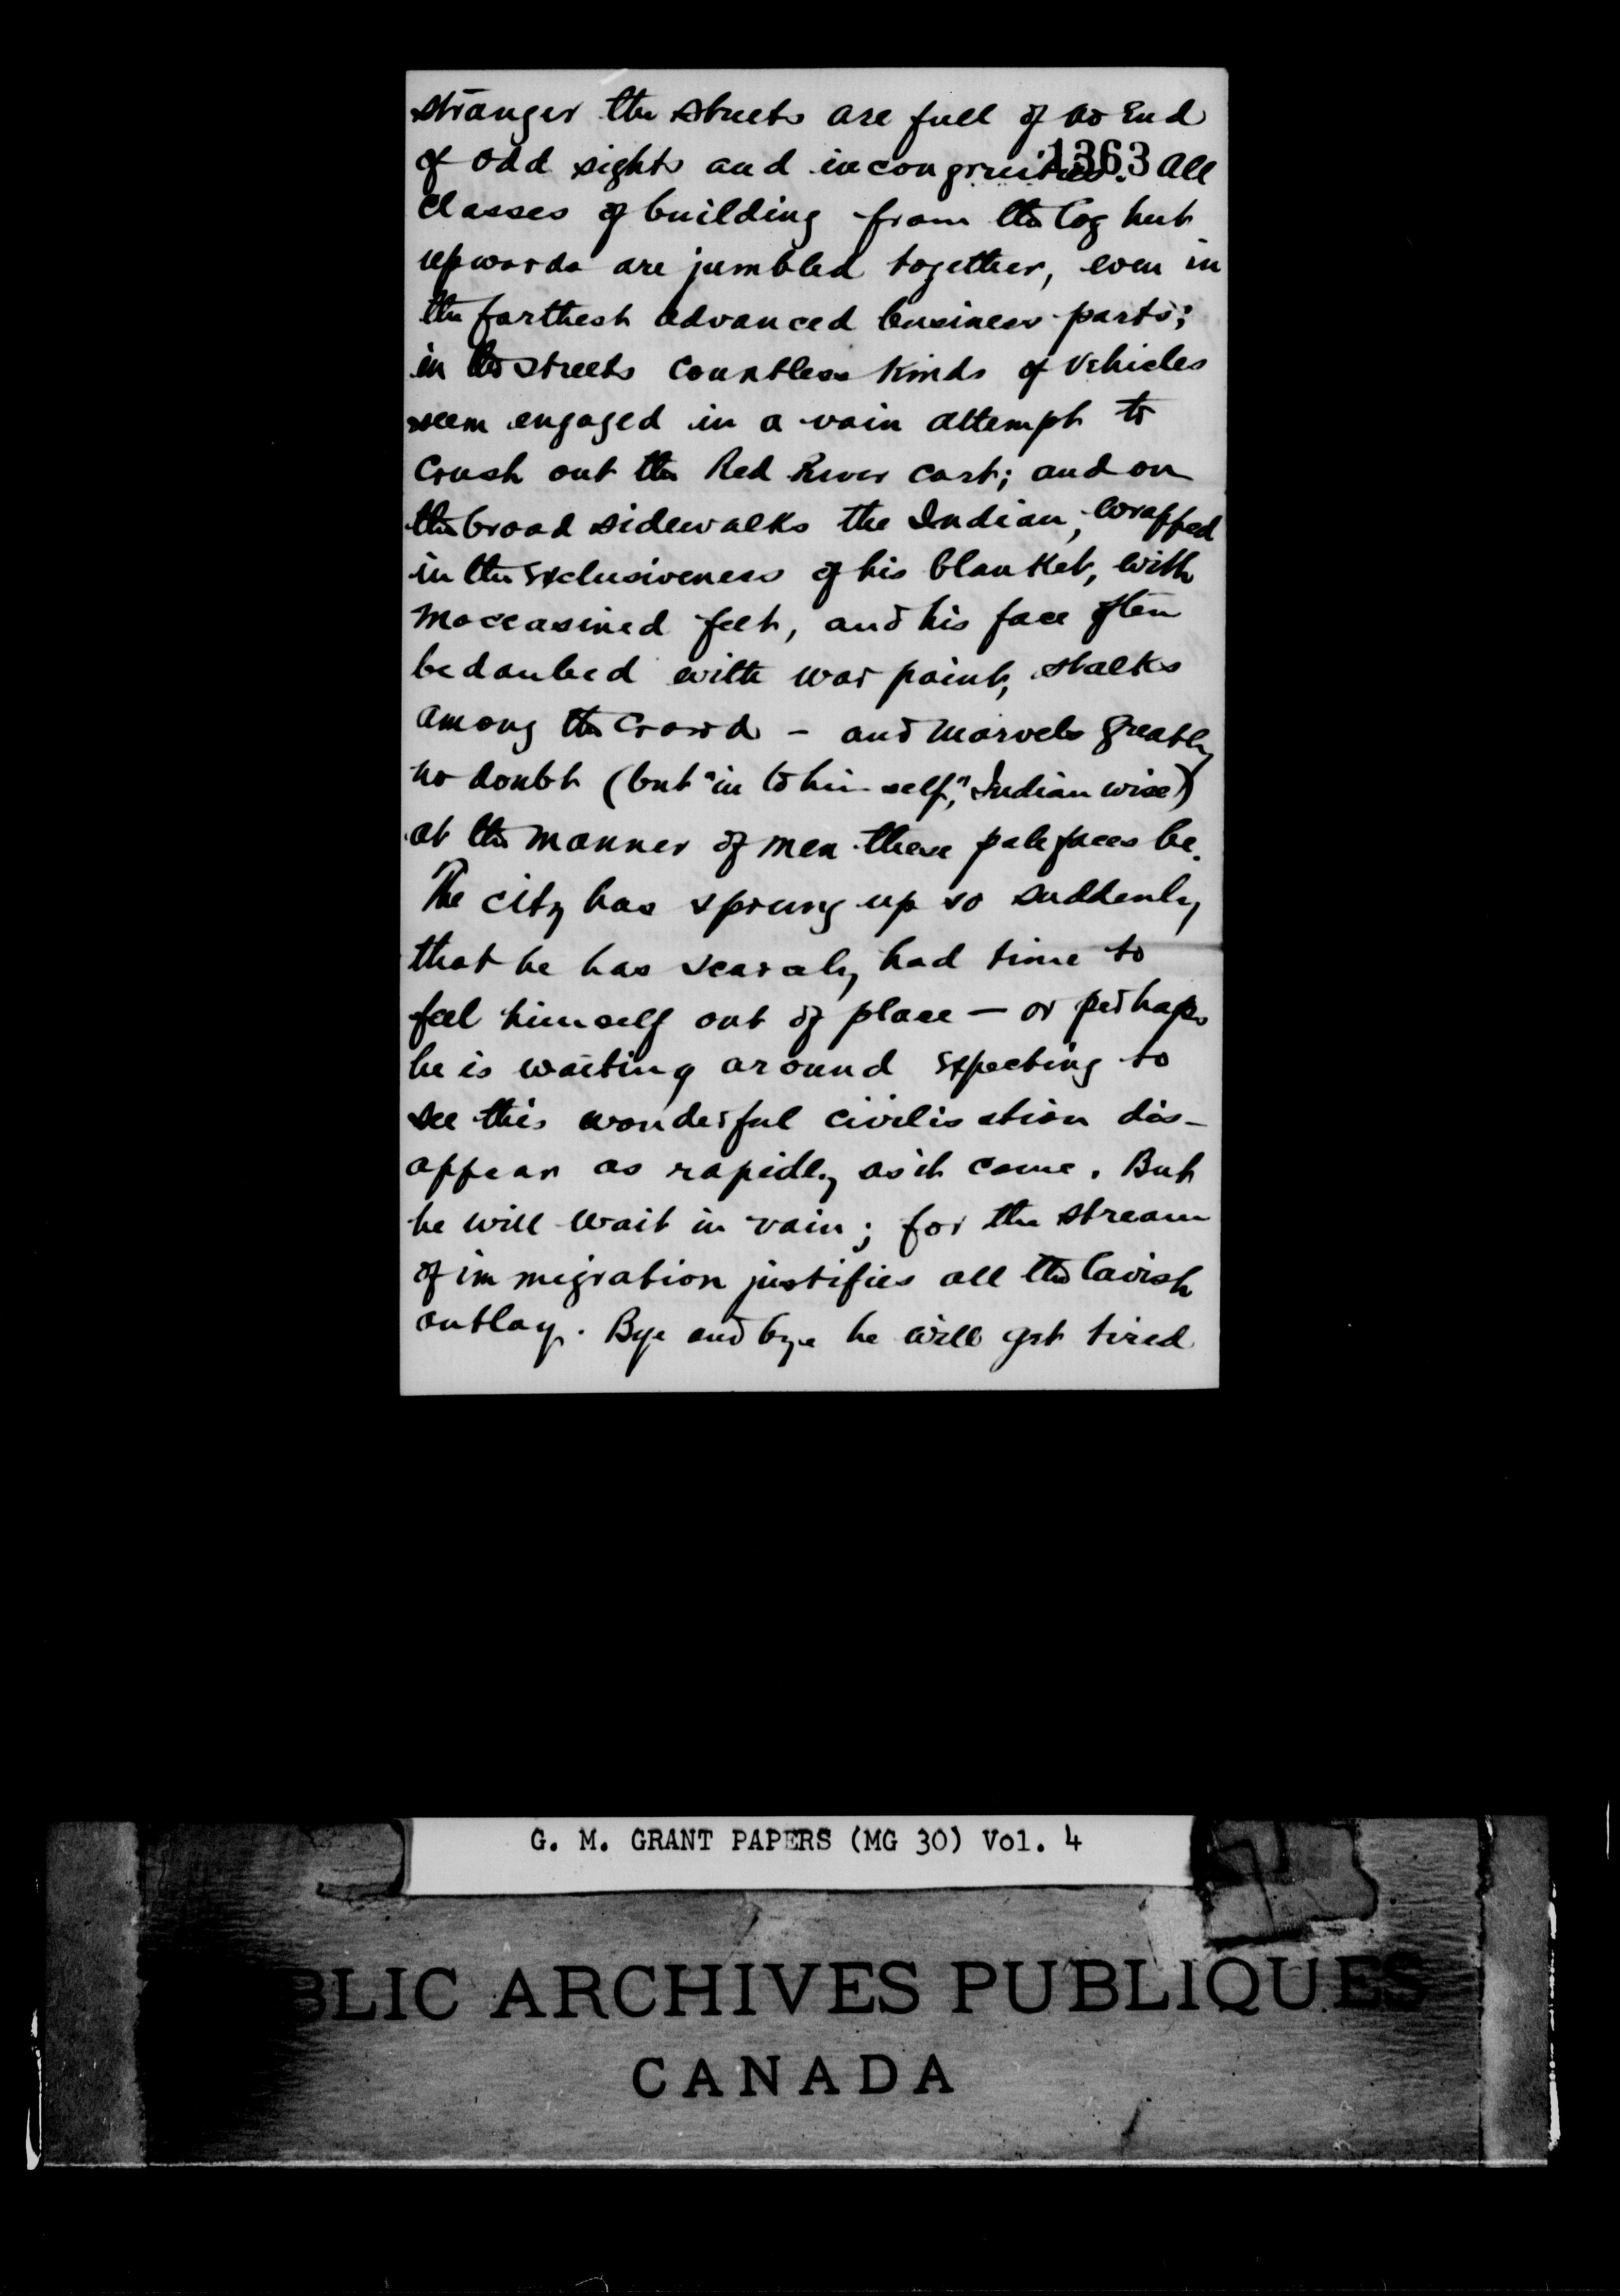 stranger the streets are full of no end
1363
of odd sights and incongruities. All
classes of building from the log hut
upwards are jumbled together, even in
the farthest advanced business parts;
in the streets countless kinds of vehicles
seem engaged in a vain attempt to
crush out the Red River cart; and on
the broad sidewalks the Indian, wrapped
in the exclusiveness of his blanket, with
moccasined feet, and his face often
bedaubed with war paint, stalks
among the crowd - and marvels greatly
no doubt (but "in to himself," Indian wise)
at the manner of men these palefaces be.
The city has sprung up so suddenly
that he has scarcely had time to
feel himself out of place — or perhaps
he is waiting around expecting to
see this wonderful civilisation dis-
appear as rapidly as it came. But
he will wait in vain; for the stream
of immigration justifies all the lavish
outlay. Bye and bye he will get tired
G. M. GRANT PAPERS (MG 30) Vol. 4
BLIC ARCHIVES PUBLIQUES
CANADA